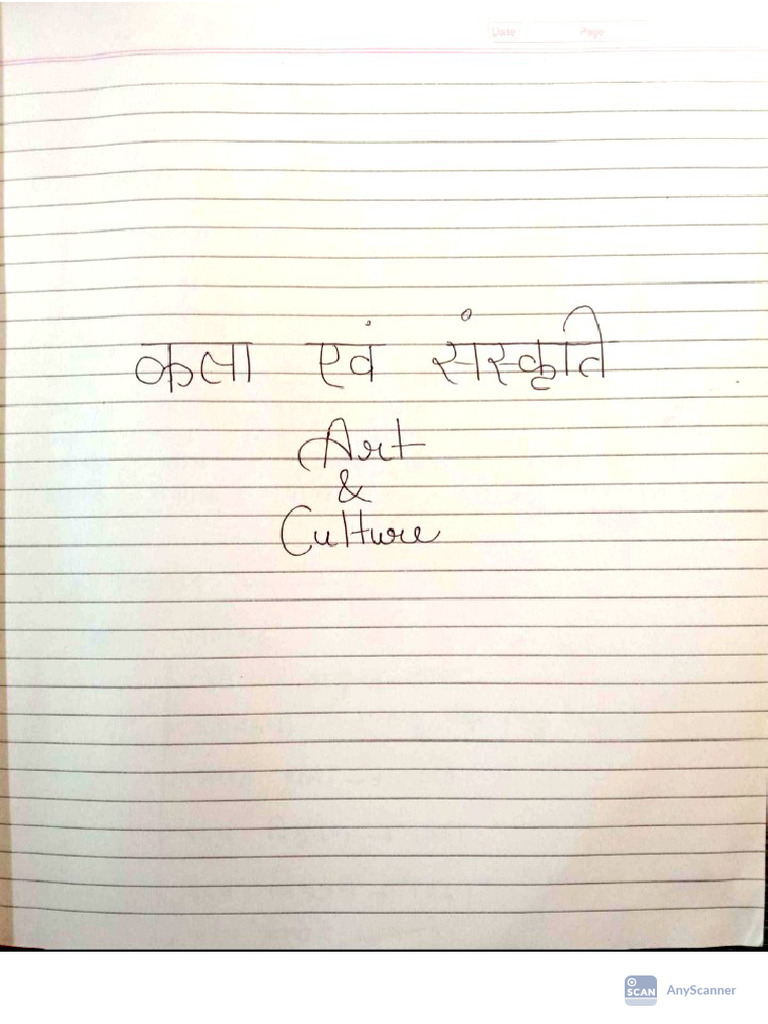 Date Page
कला एवं संस्कृति
Art
&
Culture
SCAN AnyScanner